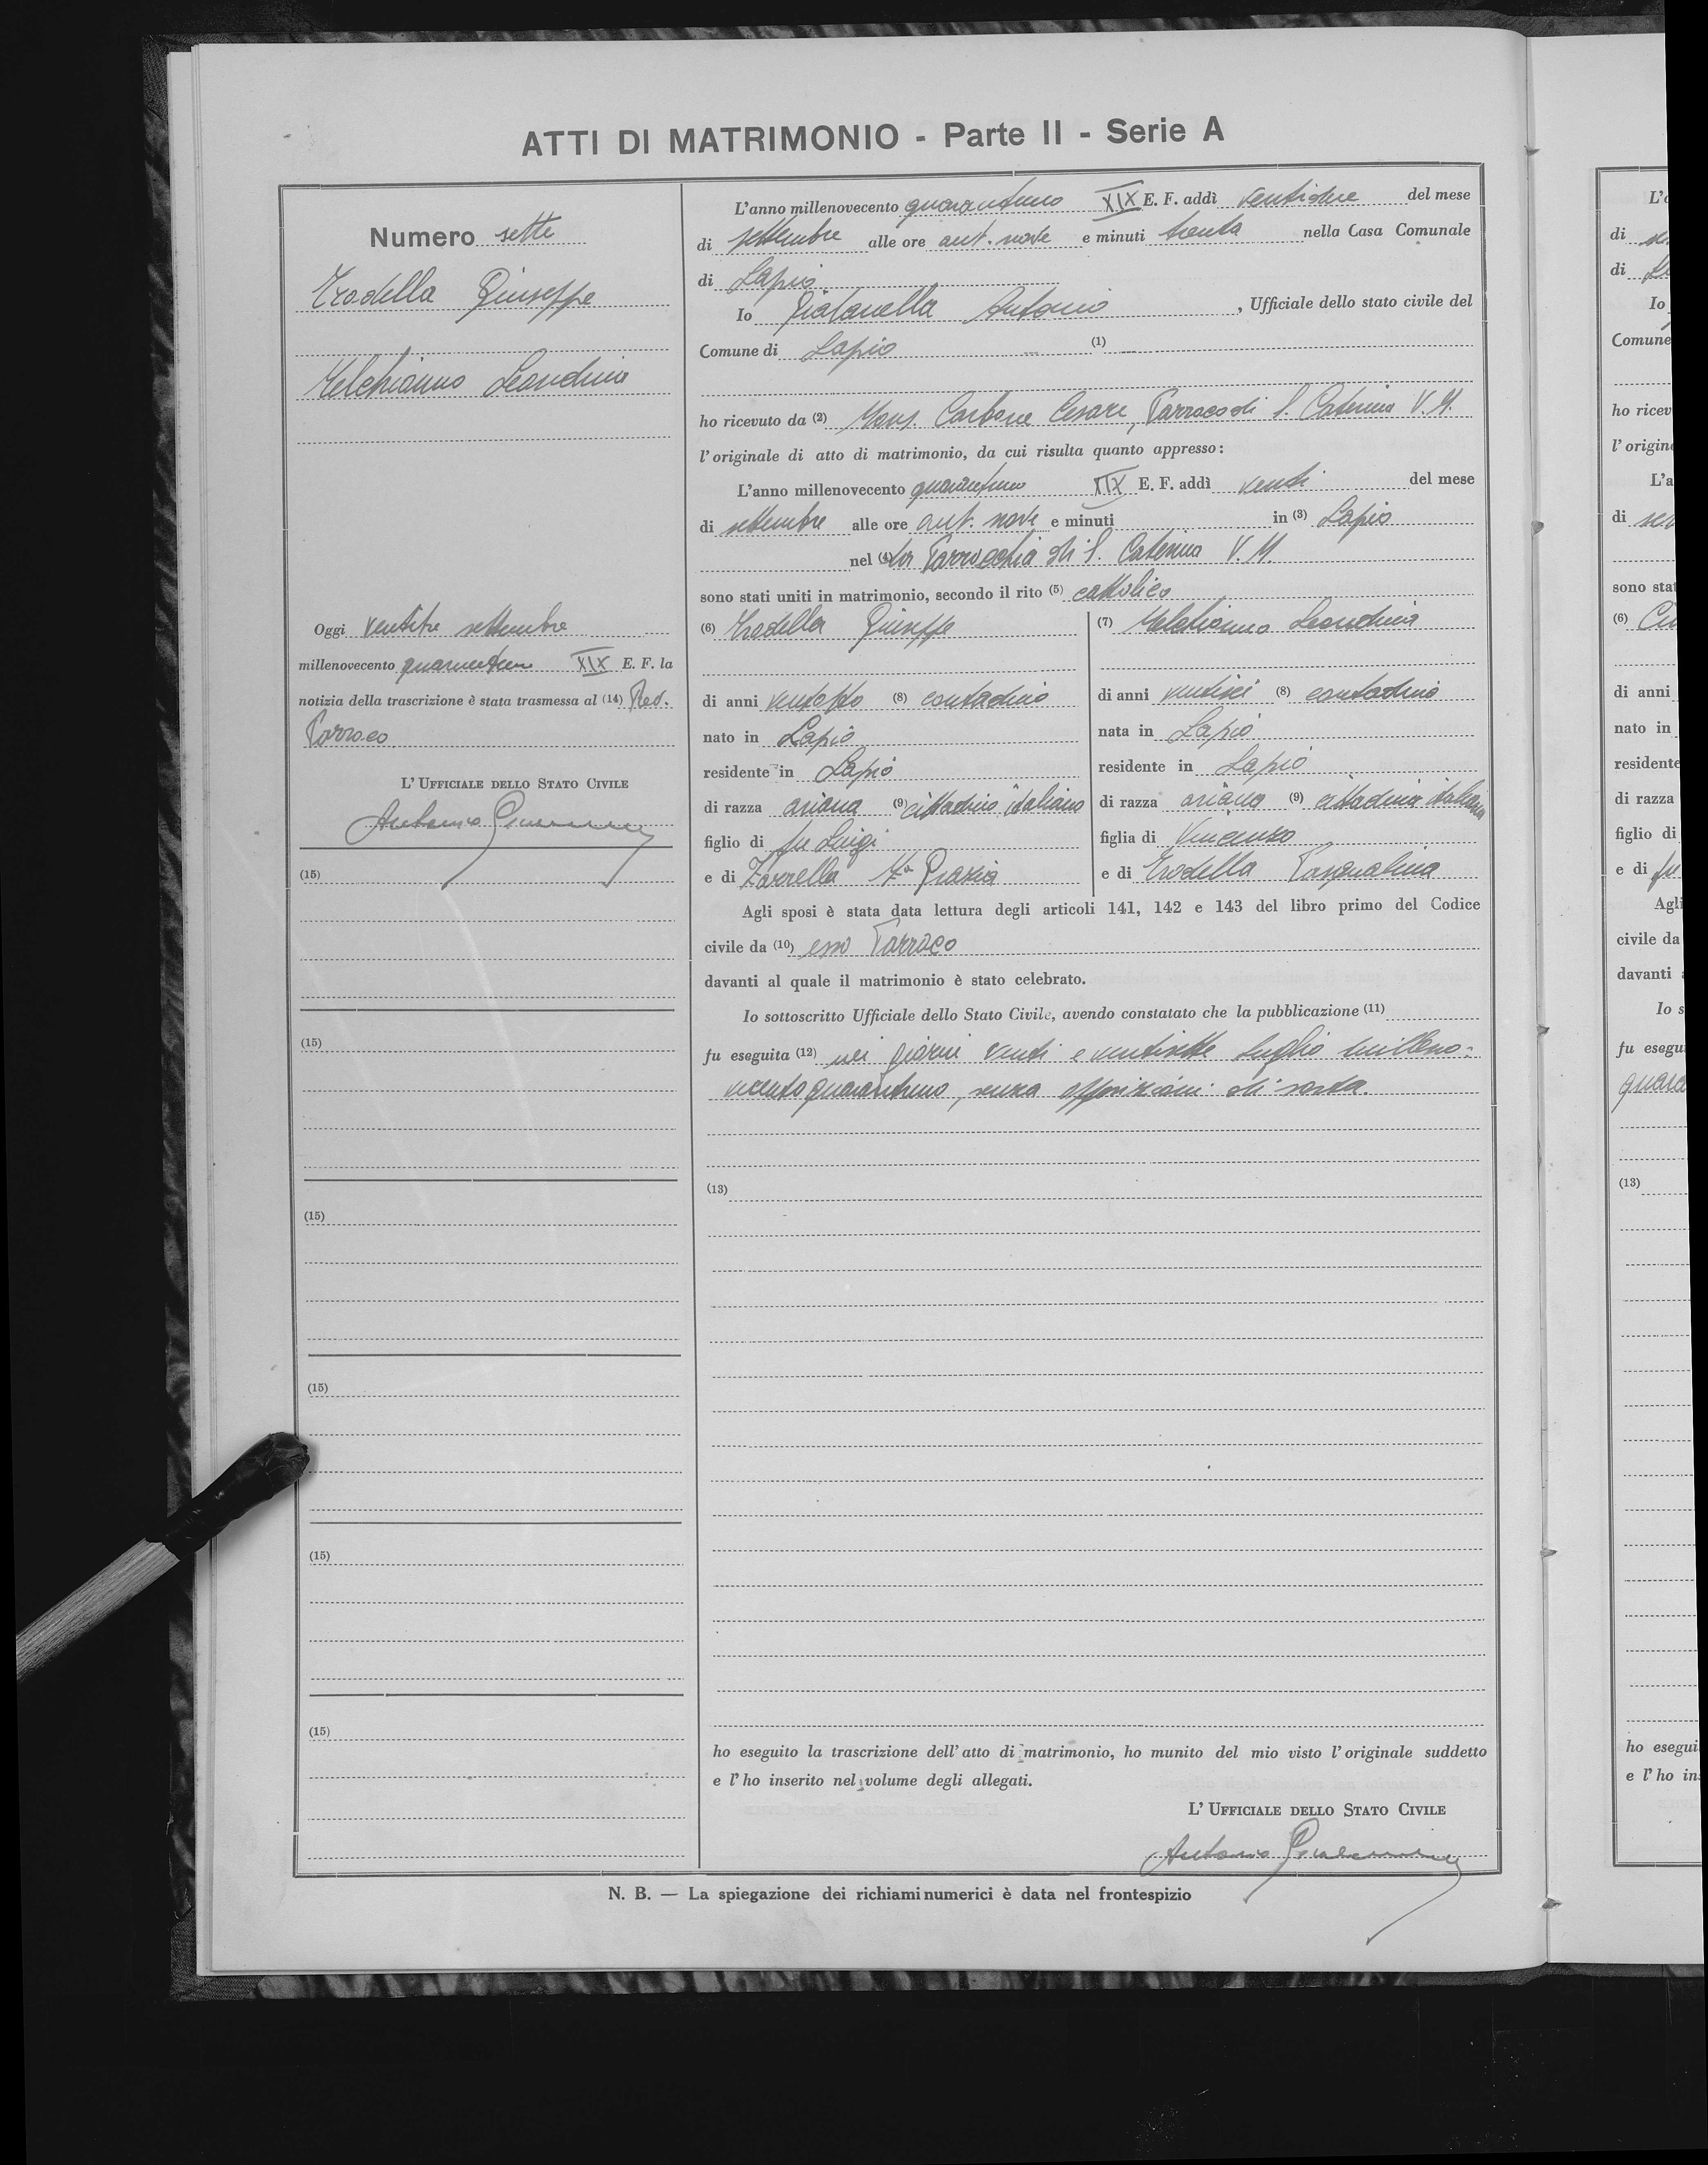 ATTI DI MATRIMONIO - Parte II - Serie A
Numero sette
Trodella Giuseppe
Melchionno Leondina
Oggi ventitre settembre
millenovecento quarantuno XIX E. F. la
notizia della trascrizione è stata trasmessa al (14) Rev.
Parroco.
L' UFFICIALE DELLO STATO CIVILE
Antonio
(15)
(15)
(15)
(15)
(15)
(15)
L'anno millenovecento quarantuno XIX E. F. addì ventidue del mese
di settembre alle ore ant. nove e minuti trenta nella Casa Comunale
di Lapio
Io Antonio, Ufficiale dello stato civile del
Comune di Lapio (1)
ho ricevuto da (2) Mons. Carbone Cesare, Parroco di S. Caterina V. M.
l'originale di atto di matrimonio, da cui risulta quanto appresso:
L'anno millenovecento quarantuno XIX E. F. addì venti del mese
di settembre alle ore ant. nove e minuti in (3) Lapio
nel (4) la Parrocchia di S. Caterina V. M.
sono stati uniti in matrimonio, secondo il rito (5) cattolico
(6) Trodella Giuseppe
di anni ventotto (8) contadino
nato in Lapio
residente in Lapio
di razza ariana (9) cittadino italiano
figlio di fu Luigi
e di Zarrella Ma Grazia
(7) Melchionno Leondina
di anni ventisei (8) contadina
nata in Lapio
residente in Lapio
di razza ariana (9) cittadina italiana
figlia di Vincenzo
e di Trodella Pasqualina
Agli sposi è stata data lettura degli articoli 141, 142 e 143 del libro primo del Codice
civile da (10) esso Parroco
davanti al quale il matrimonio è stato celebrato.
Io sottoscritto Ufficiale dello Stato Civile, avendo constatato che la pubblicazione (11)
fu eseguita (12) nei giorni venti e ventisette luglio milleno=
vecentoquarantuno, senza opposizioni di sorta.
(13)
ho eseguito la trascrizione dell'atto di matrimonio, ho munito del mio visto l'originale suddetto
e l'ho inserito nel volume degli allegati.
L' UFFICIALE DELLO STATO CIVILE
Antonio
N. B. — La spiegazione dei richiami numerici è data nel frontespizio
di
di
Io
Comune
ho ricev
l'origin
L'a
di
sono stat
(6)
di anni
nato in
residente
di razza
figlio di
e di fu
Agli
civile da
davanti
Io s
fu esegu
(13)
ho esegui
e l'ho in